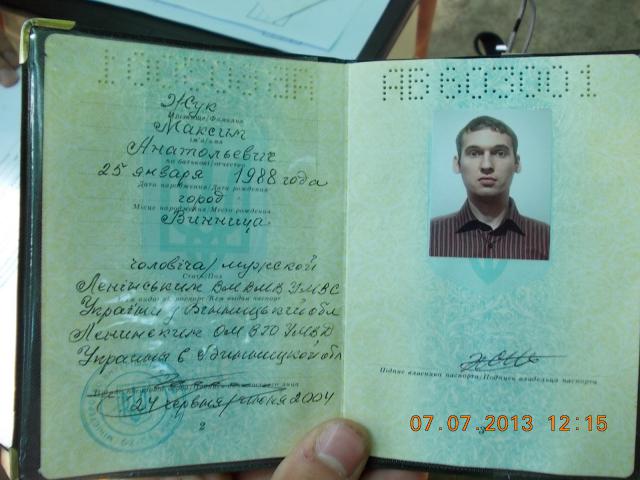 Жук
Прізвище/Фамилия
Максим
Ім'я/Имя
Анатольевич
По батькові/Отчество
25 января 1988 года
Дата народження/Дата рождения
город
Місце народження/Место рождения
Винница
чоловіча/мужской
Стать/Пол
Ленінським ВМ УМВС
України у Вінницькій обл
Ленинским ОМ УМВД
Украины в Винницкой обл
24 червня/июня 2004
2
АВ 603001
Підпис власника паспорта/Подпись владельца паспорта
3
07.07.2013 12:15